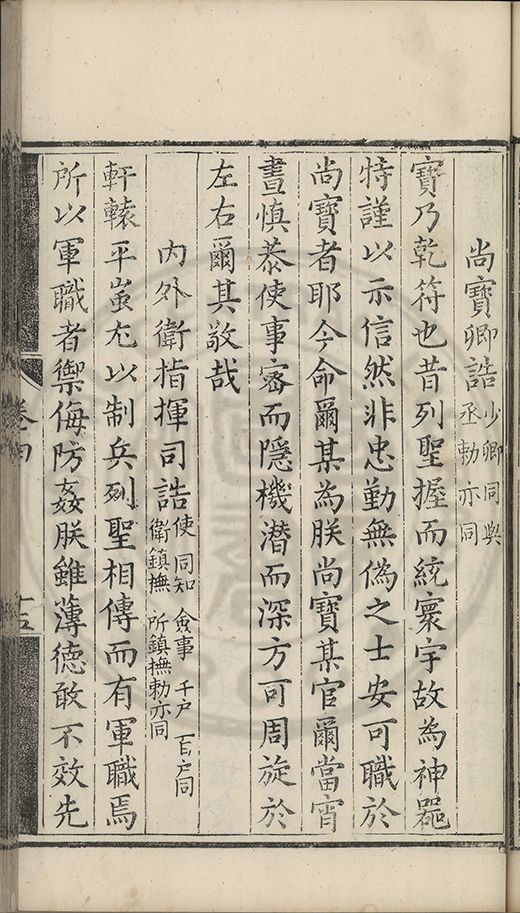 尚寶卿誥少卿同與丞勅亦同
寶乃乾符也昔列聖握而統寰宇故為神器
特謹以示信然非忠勤無偽之士安可職於
尚寶者耶今命爾某為朕尚寶某官爾當宵
晝慎恭使事密而隱機潛而深方可周旋於
左右爾其敬哉
內外衛指揮司誥使同知僉事千戶百戶同衛鎮撫所鎮撫勅亦同
軒轅平蚩尤以制兵列聖相傳而有軍職焉
所以軍職者禦侮防姦朕雖薄德敢不效先
卷四